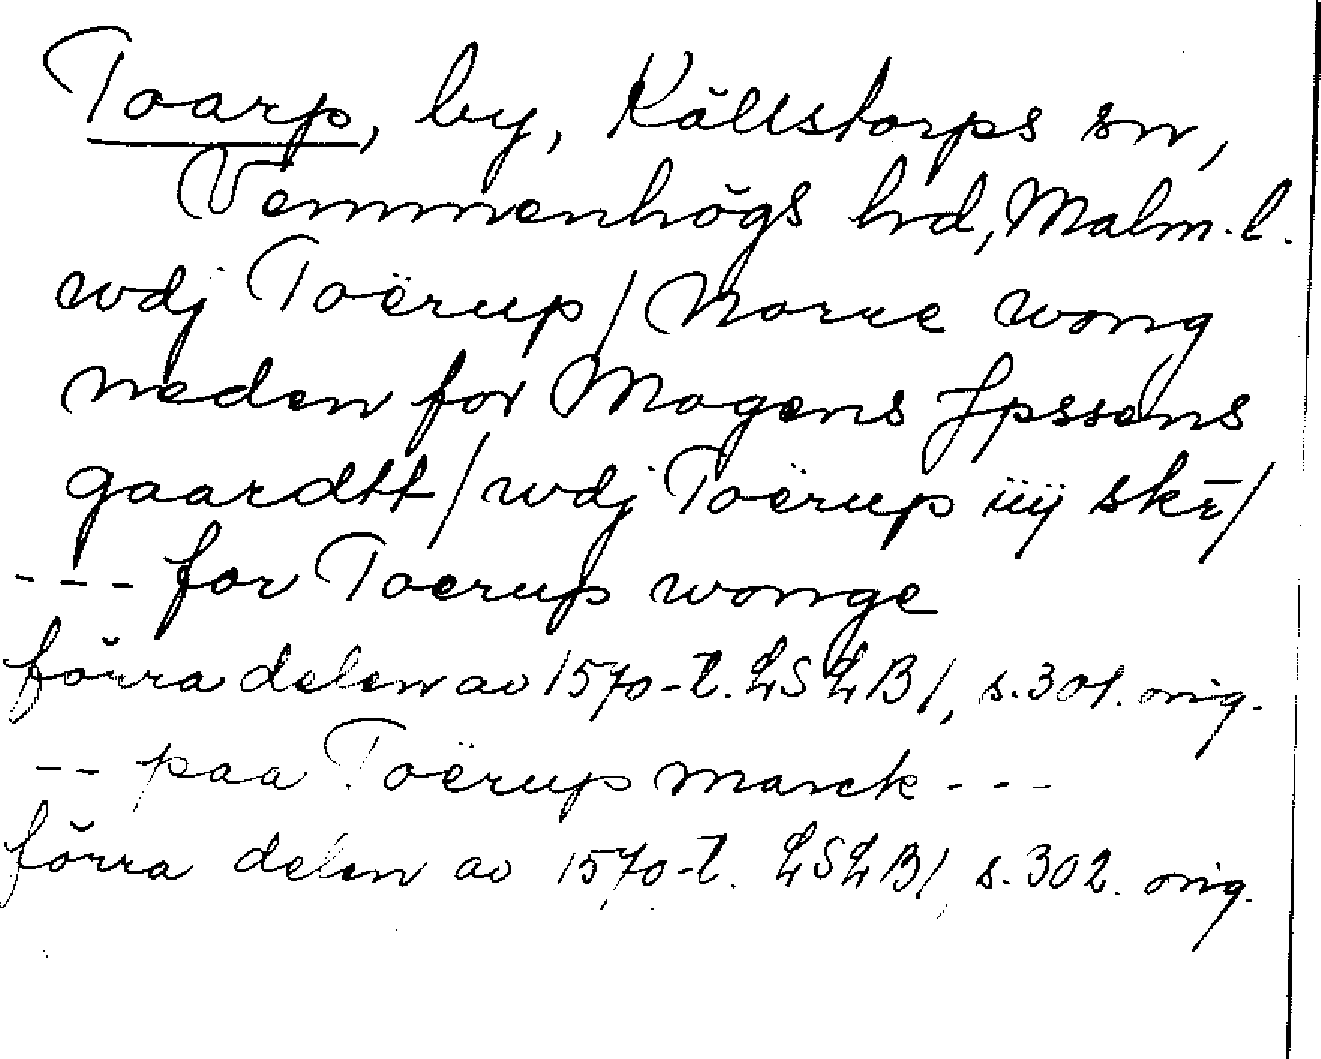 Toarp, by, Källstorps sn,
Vemmenhögs hd, Malm. l.
wdj Toërup / Norre wong
neden for Mogens Jpssens
gaardtt / wdj Toërup iiij skr /
--- for Toerup wonge
förra delen av 1570-t. LSLB1, s. 301. orig.
-- paa Toërup marck ---
förra delen av 1570-t. LSLB1, s. 302. orig.